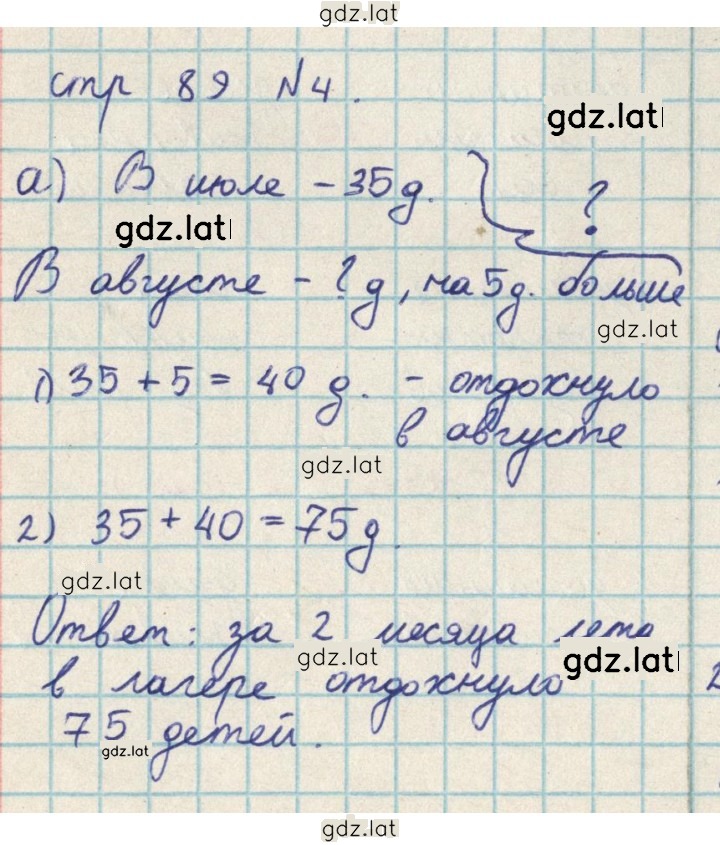 gdz.lat
стр 89 №4.
gdz.lat
а) В июле - 35 д.
?
gdz.lat
В августе - ? д, на 5 д. больше
gdz.lat
1) 35 + 5 = 40 д. - отдохнуло
в августе
gdz.lat
2) 35 + 40 = 75 д.
gdz.lat
Ответ: за 2 месяца лета
gdz.lat
gdz.lat
в лагере отдохнуло
75 детей.
gdz.lat
gdz.lat